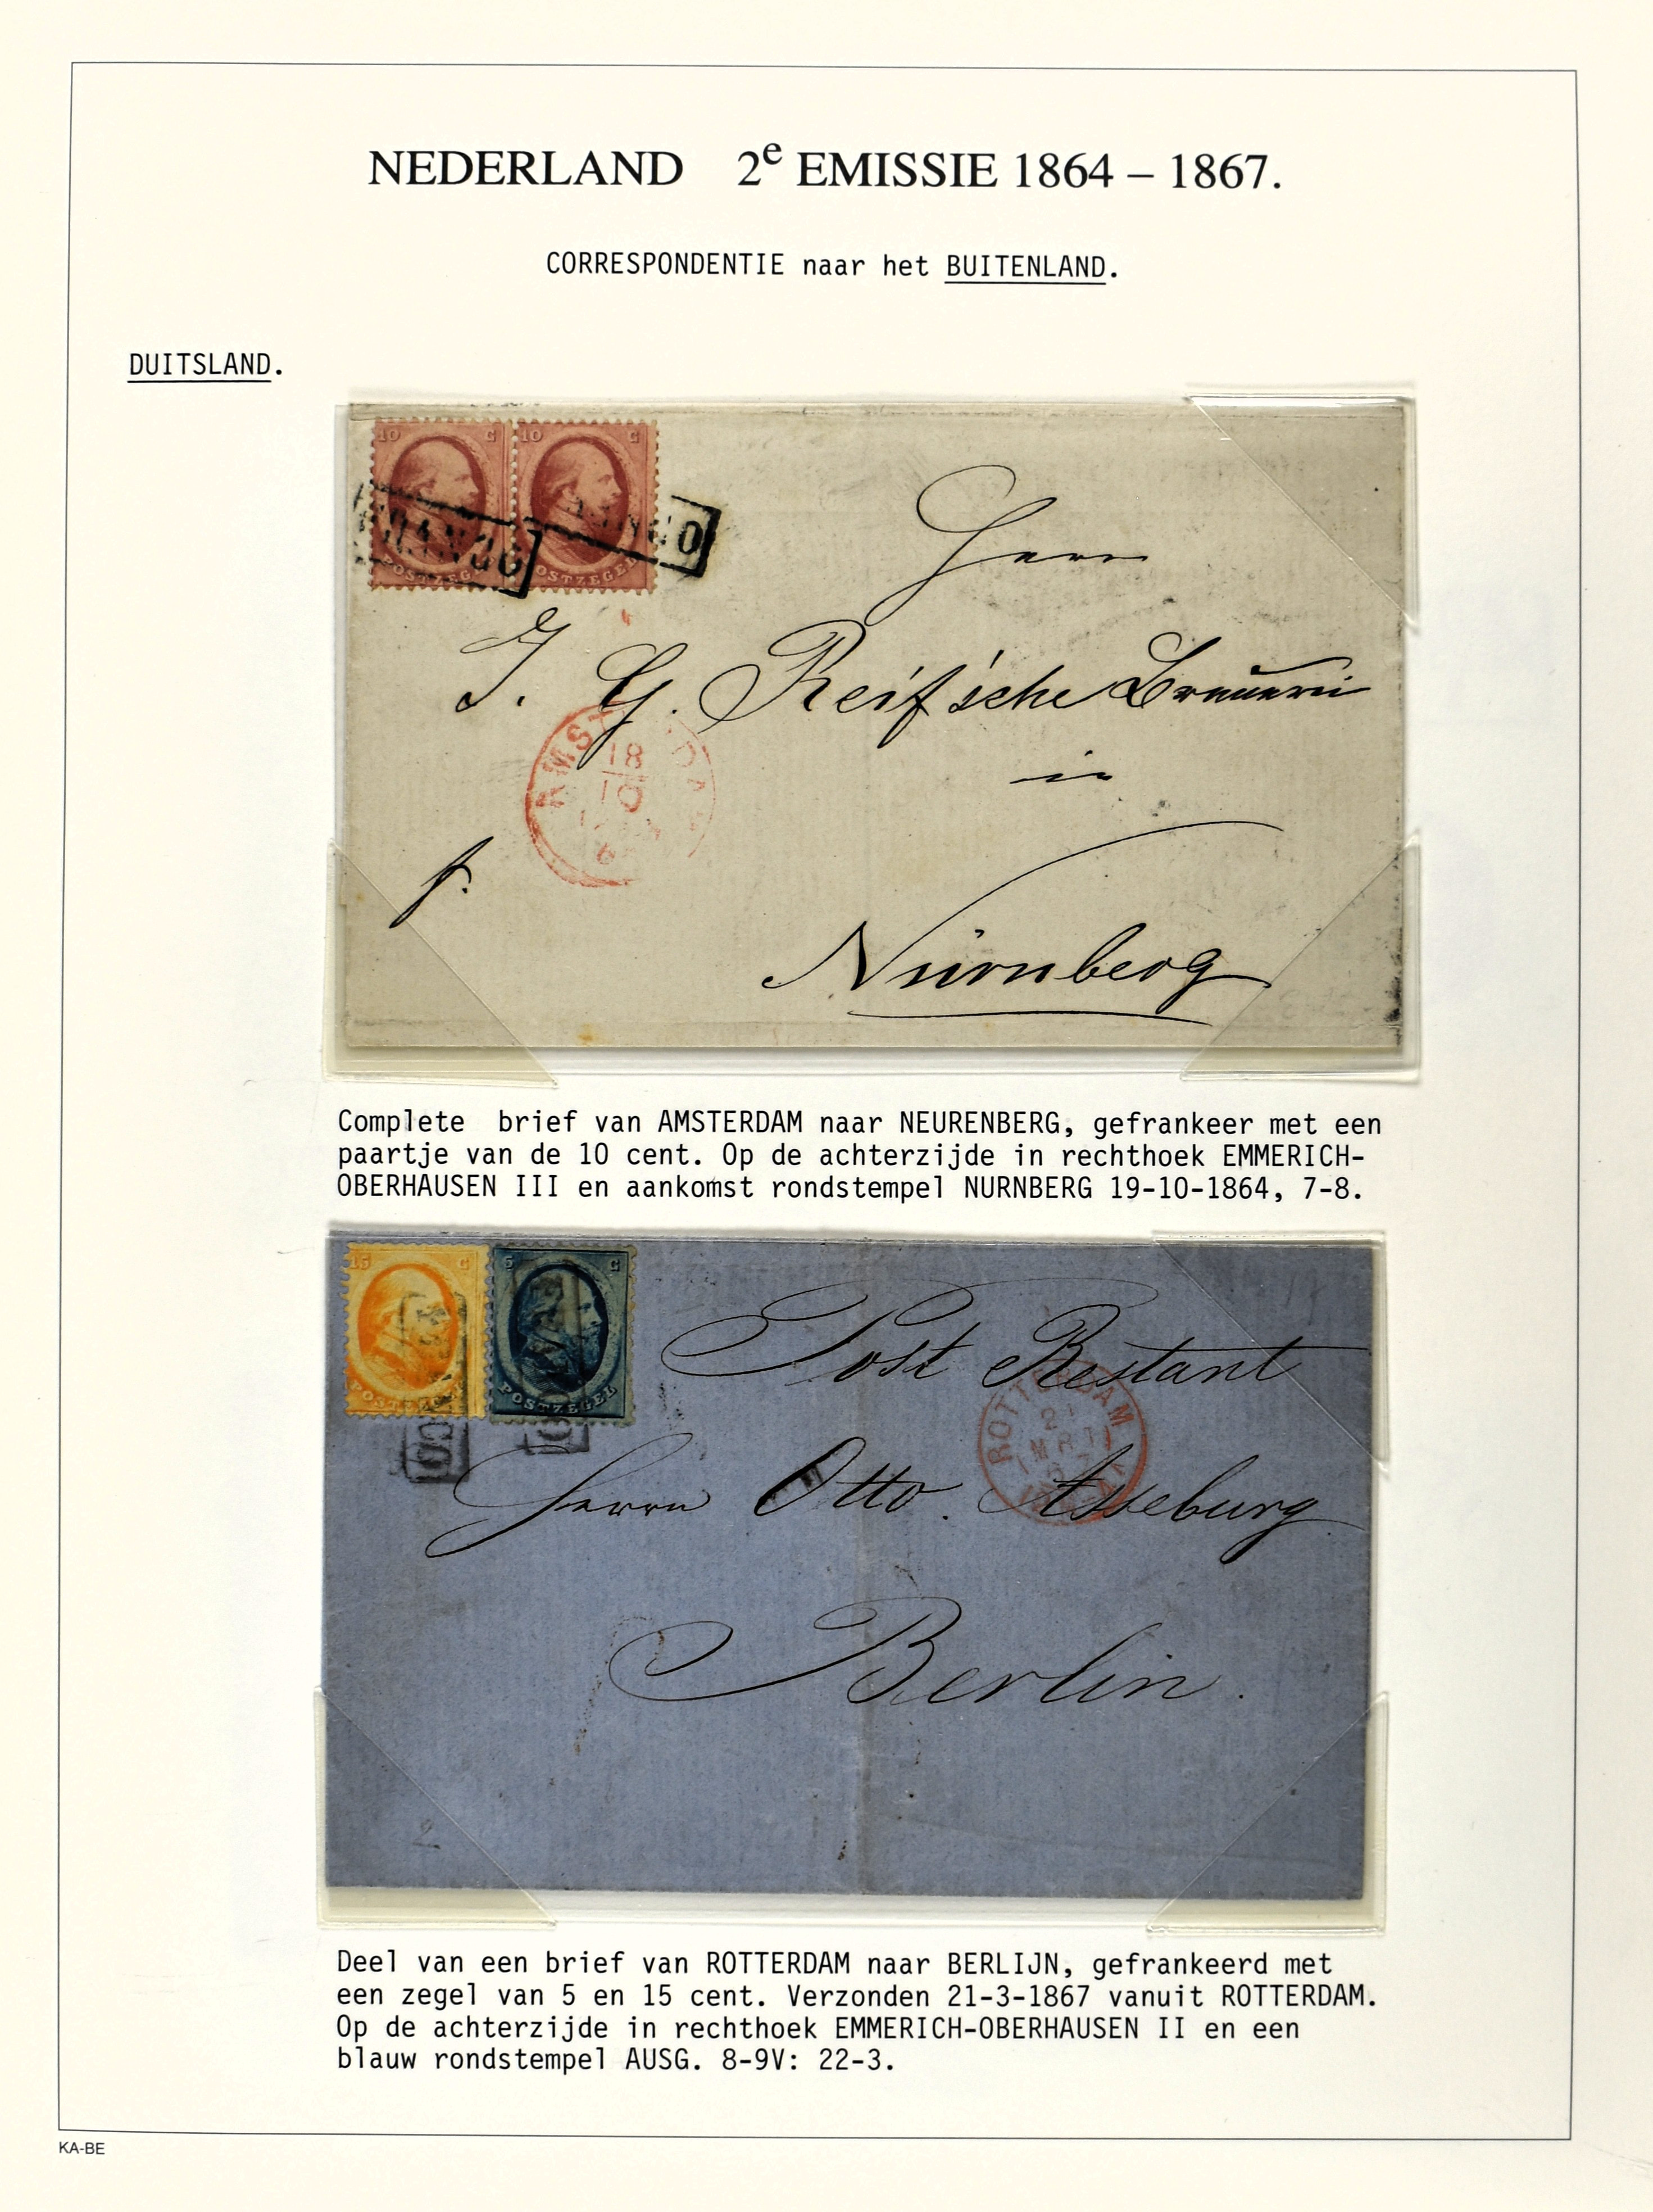 NEDERLAND 2e EMISSIE 1864 – 1867.
CORRESPONDENTIE naar het BUITENLAND.
DUITSLAND.
10 C 10 C
FRANCO
POSTZEGEL POSTZEGEL
Herrn
J. G. Reif'sche Brauerei
in
AMSTERDAM
18
10
f.
Nürnberg
Complete brief van AMSTERDAM naar NEURENBERG, gefrankeer met een
paartje van de 10 cent. Op de achterzijde in rechthoek EMMERICH-
OBERHAUSEN III en aankomst rondstempel NURNBERG 19-10-1864, 7-8.
15 C 5 C
POSTZEGEL POSTZEGEL
Post Restant
ROTTERDAM
21
MRT
67
Herrn Otto Asseburg
Berlin.
Deel van een brief van ROTTERDAM naar BERLIJN, gefrankeerd met
een zegel van 5 en 15 cent. Verzonden 21-3-1867 vanuit ROTTERDAM.
Op de achterzijde in rechthoek EMMERICH-OBERHAUSEN II en een
blauw rondstempel AUSG. 8-9V: 22-3.
KA-BE